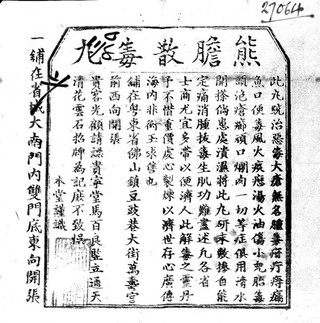 27064
熊膽散毒丸
此丸統治惡毒大瘡無名腫毒疔痔瘋
魚口便毒風火痰癧湯火油傷小兒胎毒
頭泡瘡癤頑口爛肉一切等症俱用清水
開搽倘患處潰濕將此丸研末敷摻自能
定痛消腫拔毒生肌功難盡述凡各省
士商尤宜多帶以便濟人此解毒之靈丹
予不惜重價虔心製煉以濟世存心廣傳
海內非衒玉求售也
舖在粵東省佛山鎮豆豉巷大街萬壽宮
前西向開張
貴客光顧請認貴寧堂馬百良豎立通天
清花雲石招牌為記庶不致誤
本堂謹識
一舖在省城大南門內雙門底東向開張